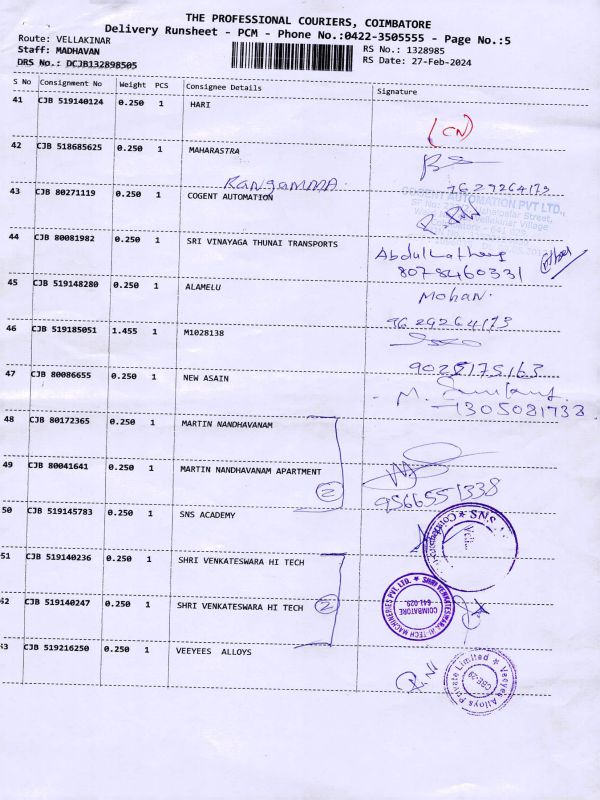 THE PROFESSIONAL COURIERS, COIMBATORE
Delivery Runsheet - PCM - Phone No.:0422-3505555 - Page No.:5
Route: VELLAKINAR
RS No.: 1328985
Staff: MADHAVAN
RS Date: 27-Feb-2024
DRS No.: DCJB132898505
S No Consignment No Weight PCS Consignee Details Signature
41 CJB 519140124 0.250 1 HARI
(CN)
42 CJB 518685625 0.250 1 MAHARASTRA
Rangamma.
7629264173
43 CJB 80271119 0.250 1 COGENT AUTOMATION
COGENT AUTOMATION PVT LTD.,
44 CJB 80081982 0.250 1 SRI VINAYAGA THUNAI TRANSPORTS
8078460331
45 CJB 519148280 0.250 1 ALAMELU
Mohan.
9629264173
46 CJB 519185051 1.455 1 M1028138
9025175163
47 CJB 80086655 0.250 1 NEW ASAIN
M.
7305081733
48 CJB 80172365 0.250 1 MARTIN NANDHAVANAM
49 CJB 80041641 0.250 1 MARTIN NANDHAVANAM APARTMENT
2
9566551338
50 CJB 519145783 0.250 1 SNS ACADEMY
SNS
51 CJB 519140236 0.250 1 SHRI VENKATESWARA HI TECH
SHRI VENKATESWARA HI TECH MACHINERIES PVT. LTD.
COIMBATORE
641 029
52 CJB 519140247 0.250 1 SHRI VENKATESWARA HI TECH
2
53 CJB 519216250 0.250 1 VEEYEES ALLOYS
Veeyes Alloys Private Limited
CBE-29